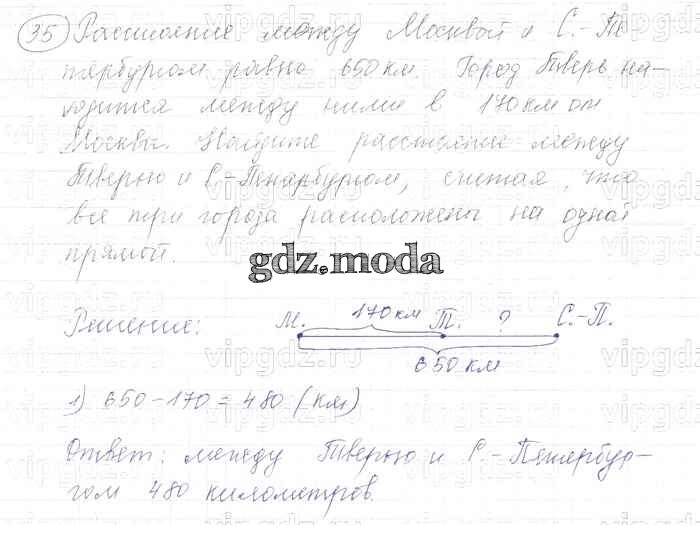 35 Расстояние между Москвой и С.-Пе
тербургом равно 650 км. Город Тверь на-
ходится между ними в 170 км от
Москвы. Найдите расстояние между
Тверью и С.-Петербургом, считая, что
все три города расположены на одной
прямой.
gdz.moda
Решение:
М. 170 км Т. ? С.-П.
650 км
1) 650-170 = 480 (км)
Ответ: между Тверью и С.-Петербур-
гом 480 километров.
vipgdz.ru